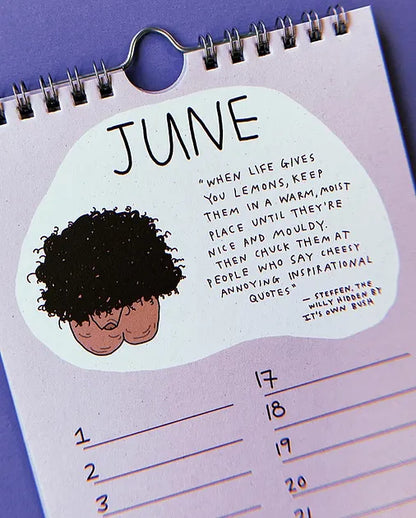 JUNE
"WHEN LIFE GIVES
YOU LEMONS, KEEP
THEM IN A WARM, MOIST
PLACE UNTIL THEY'RE
NICE AND MOULDY.
THEN CHUCK THEM AT
PEOPLE WHO SAY CHEESY
ANNOYING INSPIRATIONAL
QUOTES"
— STEFFEN, THE
WILLY HIDDEN BY
IT'S OWN BUSH
1
2
3
17
18
19
20
21